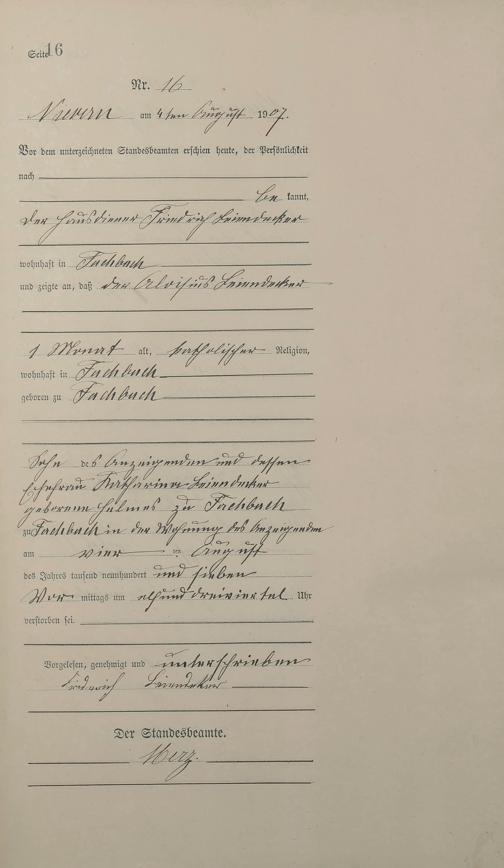 Seite 16
Nr. 16
Nievern am 4ten August 1907.
Vor dem unterzeichneten Standesbeamten erschien heute, der Persönlichkeit
nach
be kannt,
der Hausdiener Friedrich Leiendecker
wohnhaft in Fachbach
und zeigte an, daß der Aloisius Leiendecker
1 Monat alt, katholischer Religion,
wohnhaft in Fachbach
geboren zu Fachbach
Sohn des Anzeigenden und dessen
Ehefrau Katharina Leiendecker
geborene Helmes zu Fachbach
zu Fachbach in der Wohnung des Anzeigenden
am vier ten August
des Jahres tausend neunhundert und sieben
Vor mittags um elf und dreiviertel Uhr
verstorben sei.
Vorgelesen, genehmigt und unterschrieben
Friedrich Leiendecker
Der Standesbeamte.
Merz.